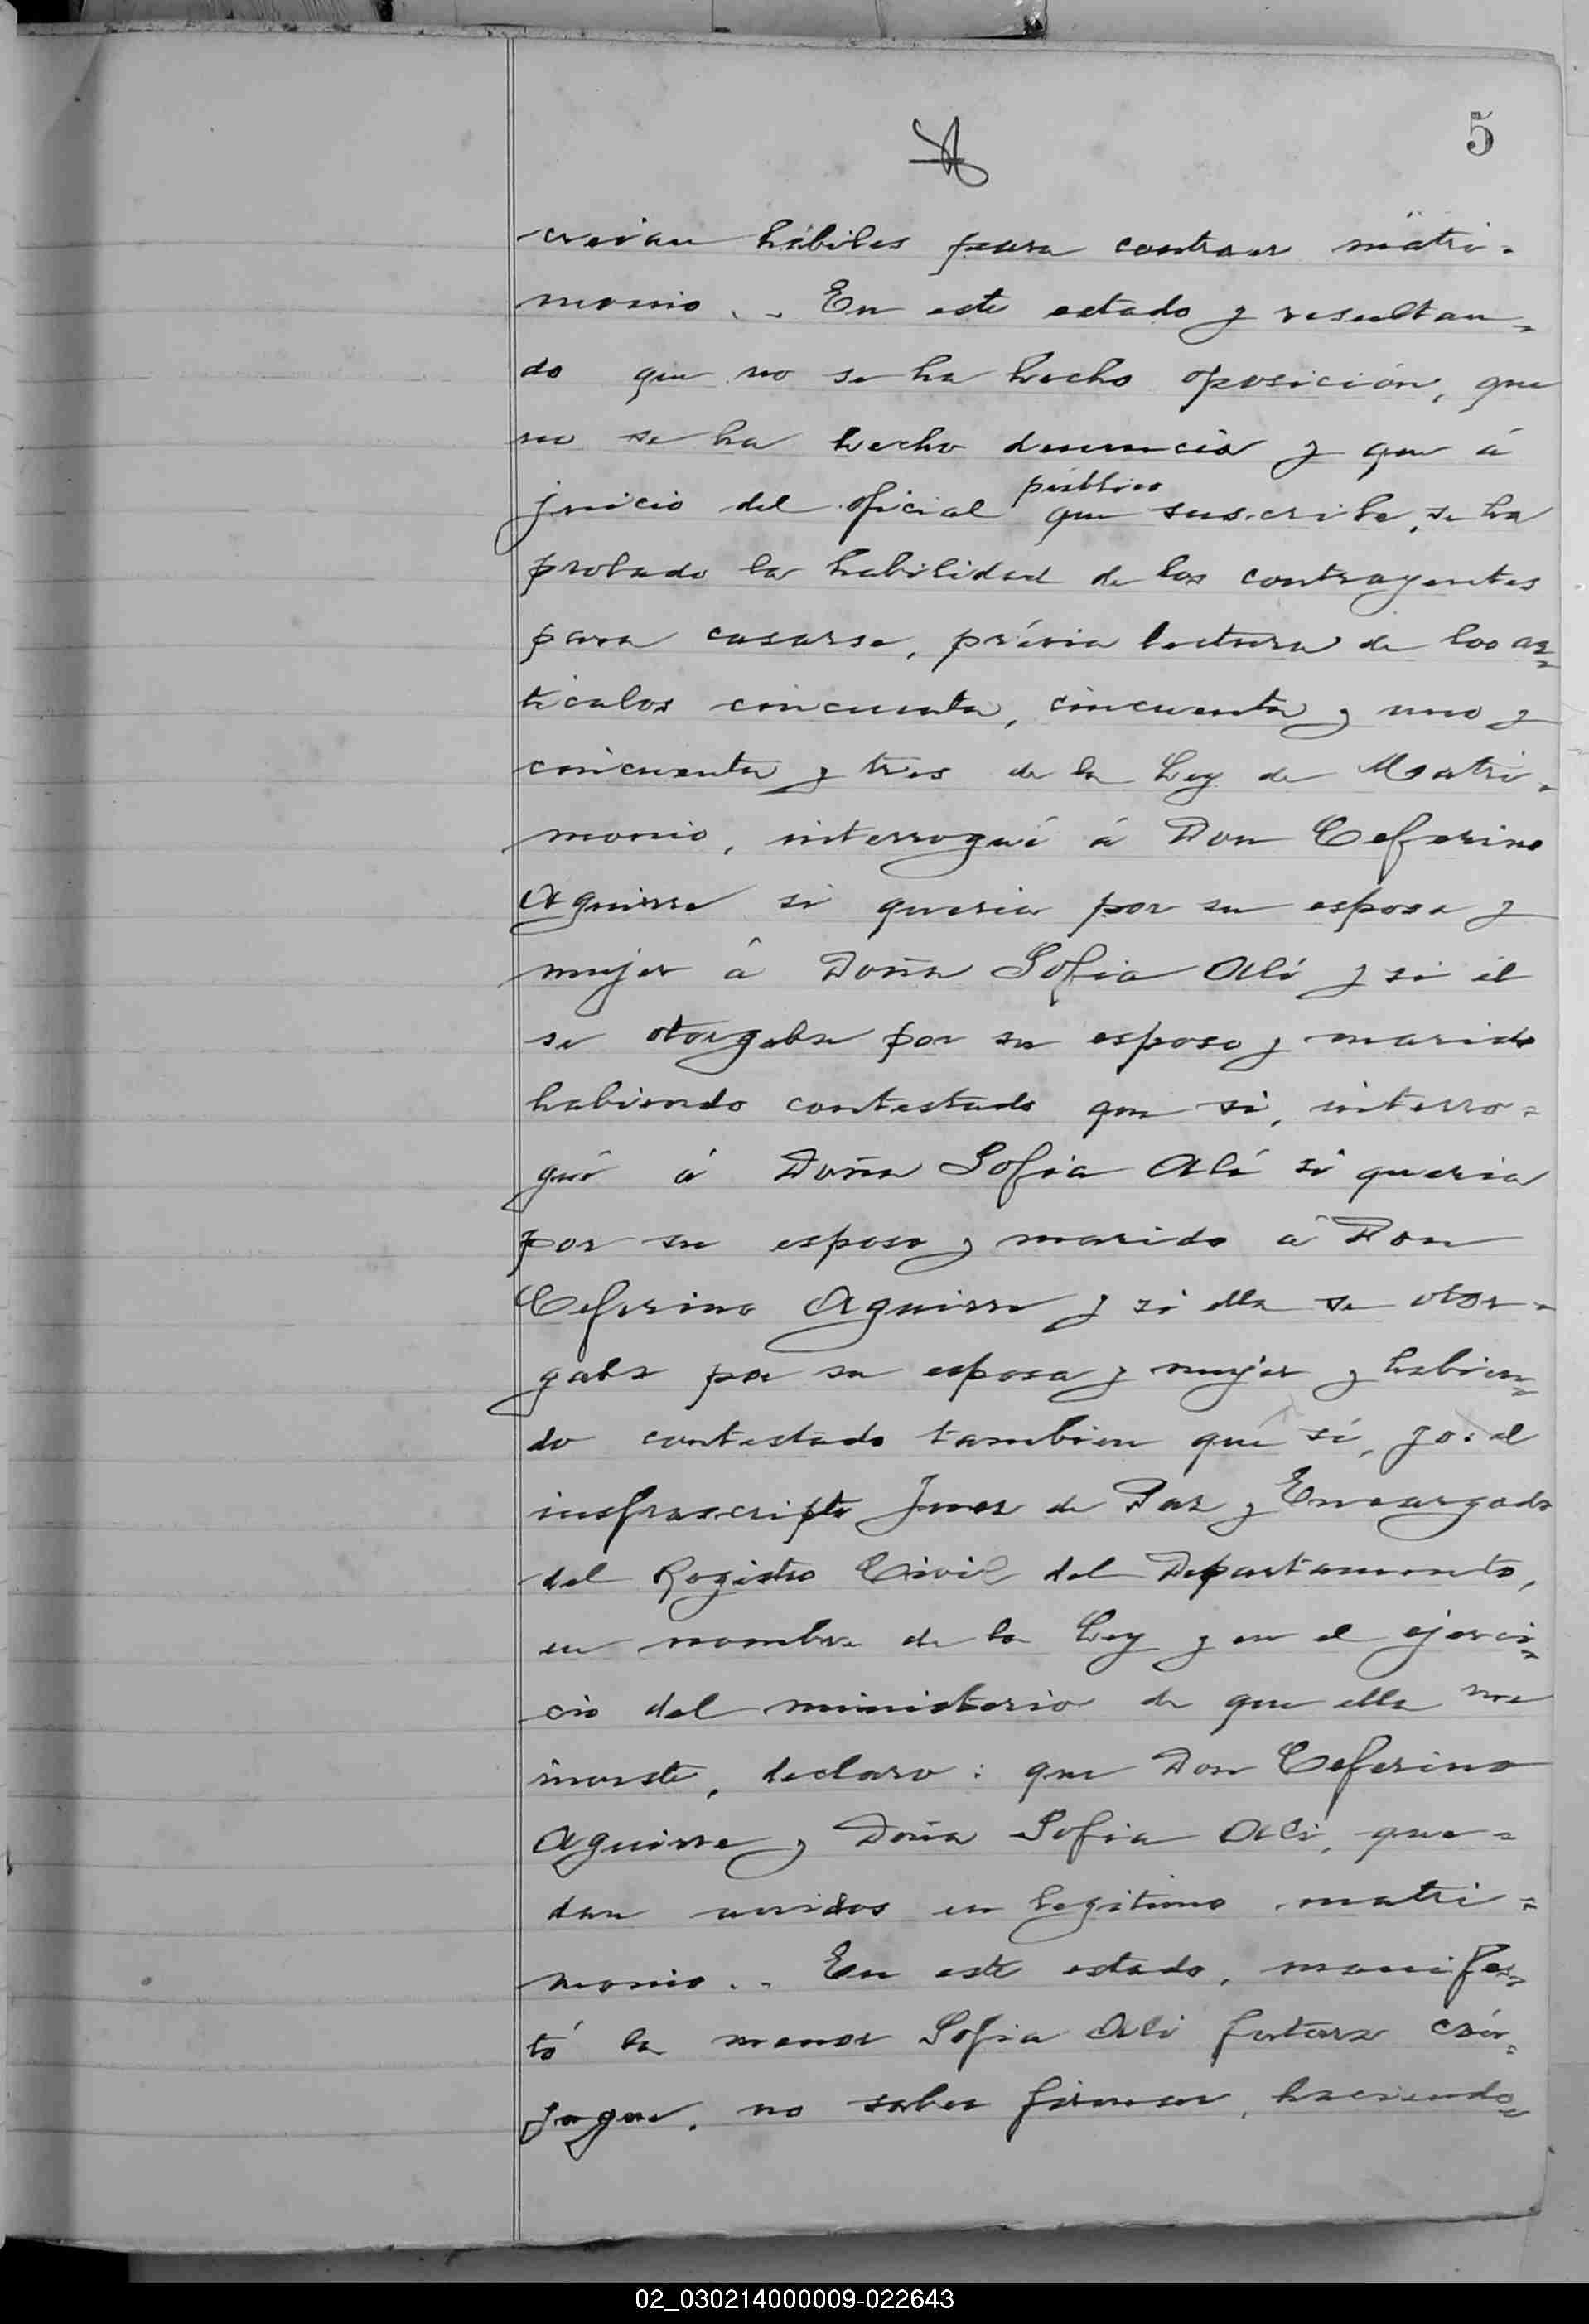 5
creian hábiles para contraer matri-
monio.. En este estado y resultan=
do que no se ha hecho oposición, que
no se ha hecho denuncia y que á
público
juicio del oficial que suscribe, se ha
probado la habilidad de los contrayentes
para casarse, prévia lectura de los ar=
ticulos cincuenta, cincuenta y uno y
cincuenta y tres de la Ley de Matri-
monio, interrogué á Don Ceferino
Aguirre si queria por su esposa y
mujer á Doña Sofia Alí y si él
se otorgaba por su esposo y marido
habiendo contestado que si, interro=
gué á Doña Sofia Alí si queria
por su esposo y marido á Don
Ceferino Aguirre y si ella se otor=
gaba por su esposa y mujer y habien=
do contestado tambien que si, yo el
infrascripto Juez de Paz y Encargado
del Registro Civil del Departamento,
en nombre de la Ley y en el ejerci=
cio del ministerio de que ella me
inviste, declaro: que Don Ceferino
Aguirre y Doña Sofia Alí, que=
dan unidos en legitimo matri=
monio.. En este estado, manifes=
tó la menor Sofia Alí futura cón=
yuge, no saber firmar, haciendo=
02_030214000009-022643